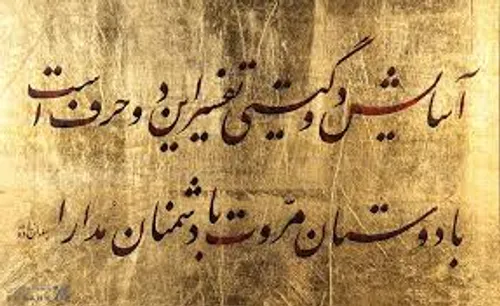 آسایش دو گیتی تفسیر این دو حرف است
با دوستان مروّت با دشمنان مُدارا